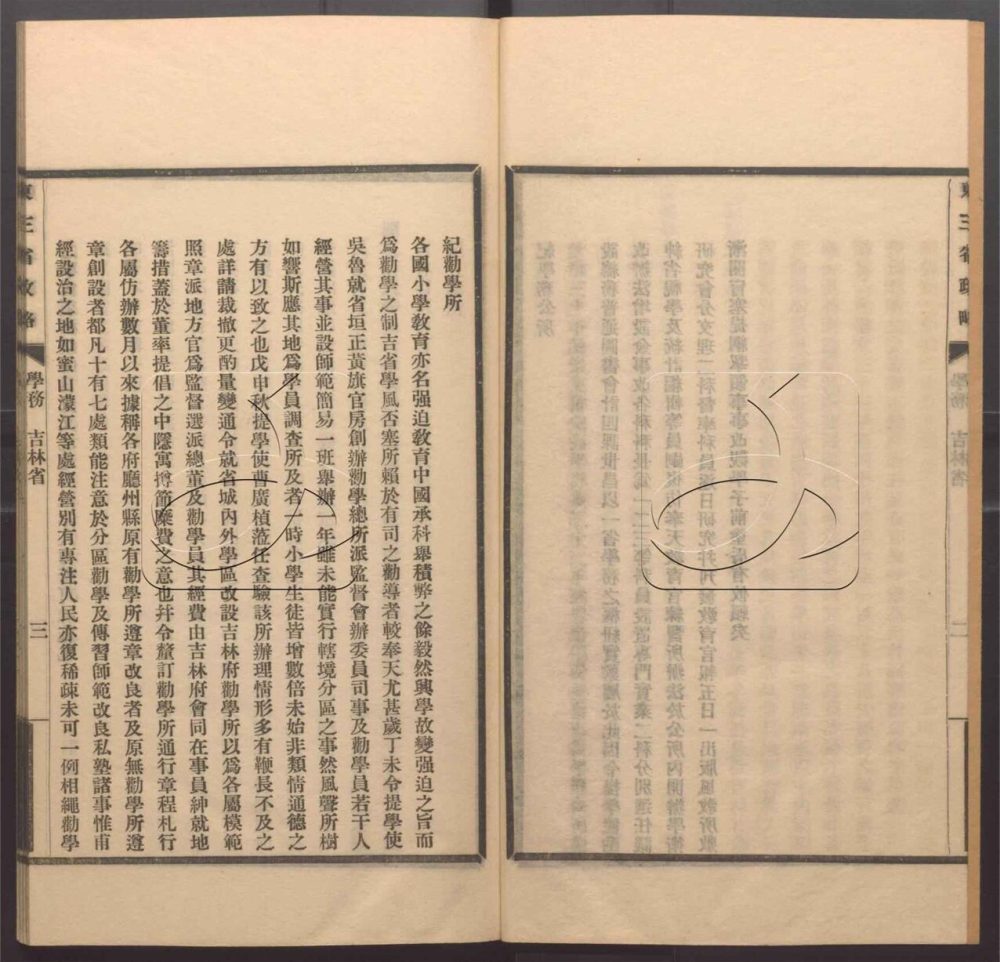 紀勸學所
各國小學教育亦名强迫敎育中國承科舉積弊之餘毅然興學故變强迫之旨而
爲勸學之制吉省學風否塞所賴於有司之勸導者較奉天尤甚歲丁未令提學使
吳魯就省垣正黃旗官房創辦勸學總所派監督會辦委員司事及勸學員若干人
經營其事並設師範簡易一班舉辦一年雖未能實行轄境分區之事然風聲所樹
如響斯應其地爲學員調查所及者一時小學生徒皆增數倍未始非類情通德之
方有以致之也戊申秋提學使曹廣楨蒞任查驗該所辦理情形多有鞭長不及之
處詳請裁撤更酌量變通令就省城內外學區改設吉林府勸學所以爲各屬模範
照章派地方官爲監督選派總董及勸學員其經費由吉林府會同在事員紳就地
籌措蓋於董率提倡之中隱寓撙節糜費之意也幷令釐訂勸學所通行章程札行
各屬仿辦數月以來據稱各府廳州縣原有勸學所遵章改良者及原無勸學所遵
章創設者都凡十有七處類能注意於分區勸學及傳習師範改良私塾諸事惟甫
經設治之地如蜜山濛江等處經營別有專注人民亦復稀疎未可一例相繩勸學
東三省政略
學務 吉林省
三